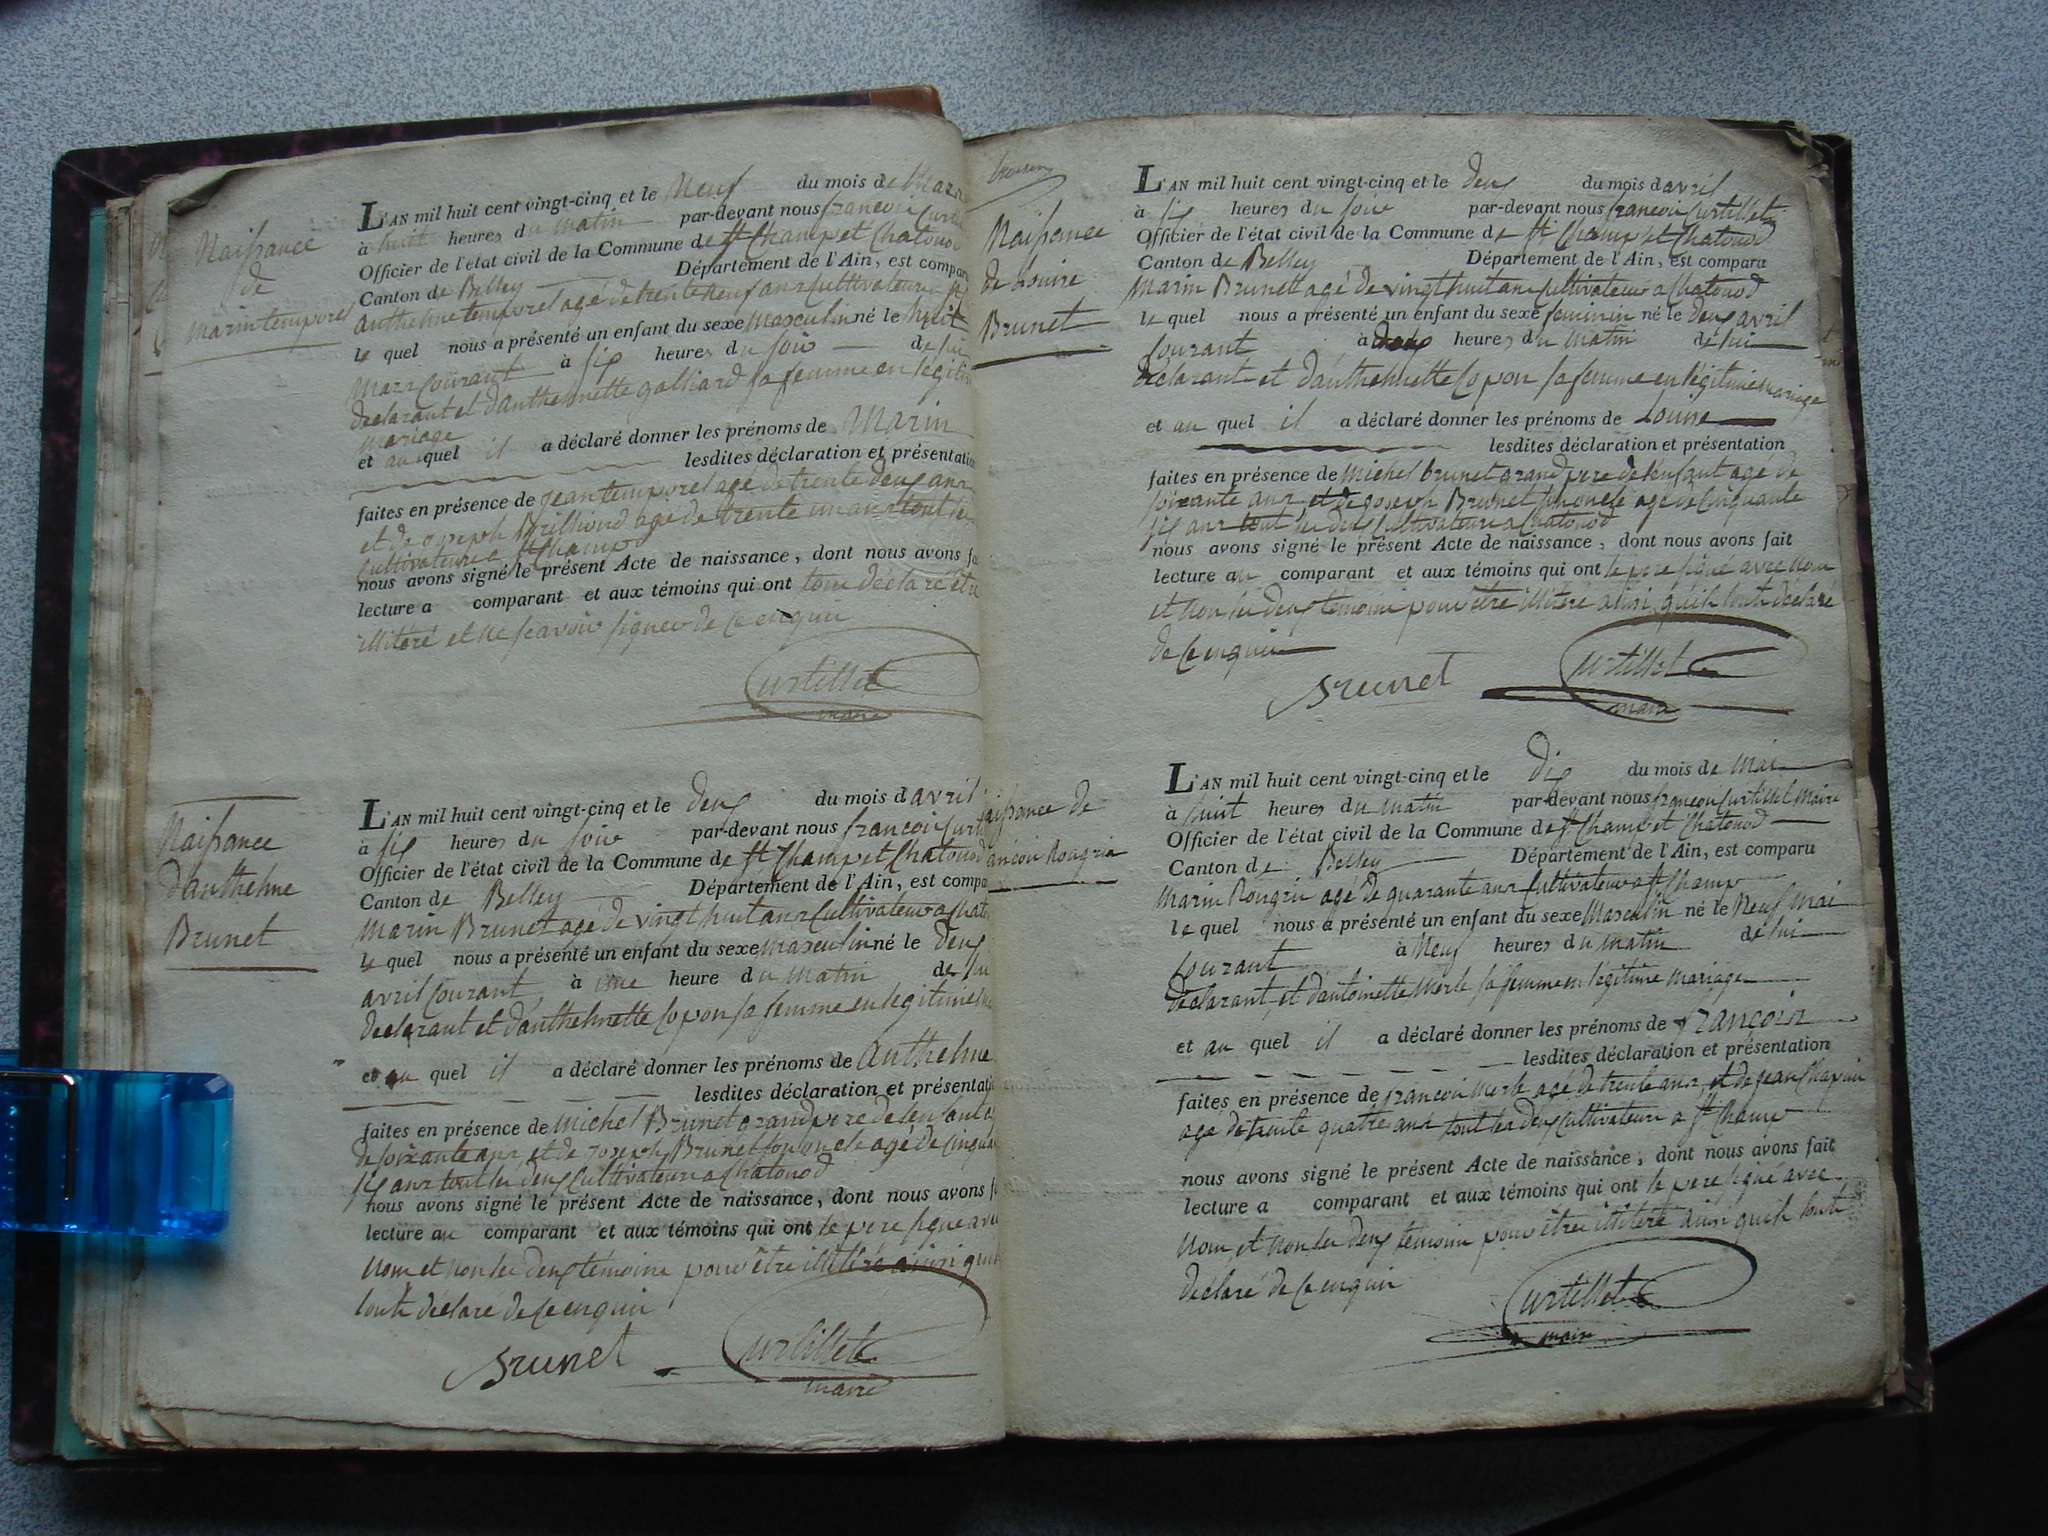 Naissance
de
marin temporel
L'AN mil huit cent vingt-cinq et le Neuf du mois de Mars
à huit heures du matin par-devant nous francois Curti
Officier de l'état civil de la Commune de St Champ et Chatonod
Canton de Belley Département de l'Ain, est compar
anthelme temporel agé de trente neuf ans Cultivateur
le quel nous a présenté un enfant du sexe Masculin né le huit
Mars Courant à six heures du soir de lui
déclarant et d'anthelmette galliard sa femme en légitim
mariage
et au quel il a déclaré donner les prénoms de Marin
lesdites déclaration et présentation
faites en présence de jean temporel agé de trente deux ans
et de joseph Brilliond agé de trente un ans tout les
Cultivateurs a St Champ
nous avons signé le présent Acte de naissance, dont nous avons fa
lecture a comparant et aux témoins qui ont tous déclaré etre
illitéré et ne scavoir signer de ce enquis
Curtillet
maire
Naissance
d'anthelme
Brunet
L'AN mil huit cent vingt-cinq et le deux du mois d'avril
à six heures du soir par-devant nous francois Curti
Officier de l'état civil de la Commune de St Champ et Chatonod
Canton de Belley Département de l'Ain, est compa
Marin Brunet agé de vingt huit ans Cultivateur a Chato
le quel nous a présenté un enfant du sexe masculin né le deux
avril Courant à une heure du matin de lui
déclarant et d'anthelmette Copon sa femme en légitime
et au quel il a déclaré donner les prénoms de anthelme
lesdites déclaration et présentati
faites en présence de Michel Brunet grand pere de lenfant
de soixante ans et de joseph Brunet son oncle agé de cinqua
six ans tout les deux Cultivateurs a Chatonod
nous avons signé le présent Acte de naissance, dont nous avons f
lecture au comparant et aux témoins qui ont le pere signé avec
Nous et non les deux témoins pour être illitéré ainsi quil
lonts déclaré de ce enquis
Brunet Curtillet
maire
Naissance
de Louise
Brunet
L'AN mil huit cent vingt-cinq et le deux du mois d'avril
à six heures du soir par-devant nous francois Curtillet
Officier de l'état civil de la Commune de St Champ et Chatonod
Canton de Belley Département de l'Ain, est comparu
Marin Brunet agé de vingt huit ans Cultivateur a Chatonod
le quel nous a présenté un enfant du sexe feminin né le deux avril
Courant à deux heures du matin de lui
déclarant et d'anthelmette Copon sa femme en légitime mariage
et au quel il a déclaré donner les prénoms de Louise
lesdites déclaration et présentation
faites en présence de Michel brunet grand pere de lenfant agé de
soixante ans et de joseph Brunet son oncle agé de Cinquante
six ans tout les deux Cultivateurs a Chatonod
nous avons signé le présent Acte de naissance, dont nous avons fait
lecture au comparant et aux témoins qui ont le pere signé avec Nous
et non les deux témoins pour être illitéré ainsi quils lonts déclaré
de ce enquis
Brunet Curtillet
maire
aissance de
ancois Rougrin
L'AN mil huit cent vingt-cinq et le dix du mois de mai
à huit heures du matin par-devant nous francois Curtillet Maire
Officier de l'état civil de la Commune de St Champ et Chatonod
Canton de Belley Département de l'Ain, est comparu
Marin Rougrin agé de quarante ans Cultivateur a St Champ
le quel nous a présenté un enfant du sexe Masculin né le Neuf Mai
Courant à Neuf heures du matin de lui
déclarant, et d'antoinette Merle sa femme en légitime mariage
et au quel il a déclaré donner les prénoms de francois
lesdites déclaration et présentation
faites en présence de francois Merle agé de trente ans, et de jean Chapuis
agé de trente quatre ans tout les deux Cultivateurs a St Champ
nous avons signé le présent Acte de naissance, dont nous avons fait
lecture a comparant et aux témoins qui ont le pere signé avec
Nous, et non les deux témoins pour être illitéré ainsi quils lonts
déclaré de ce enquis
Curtillet
maire